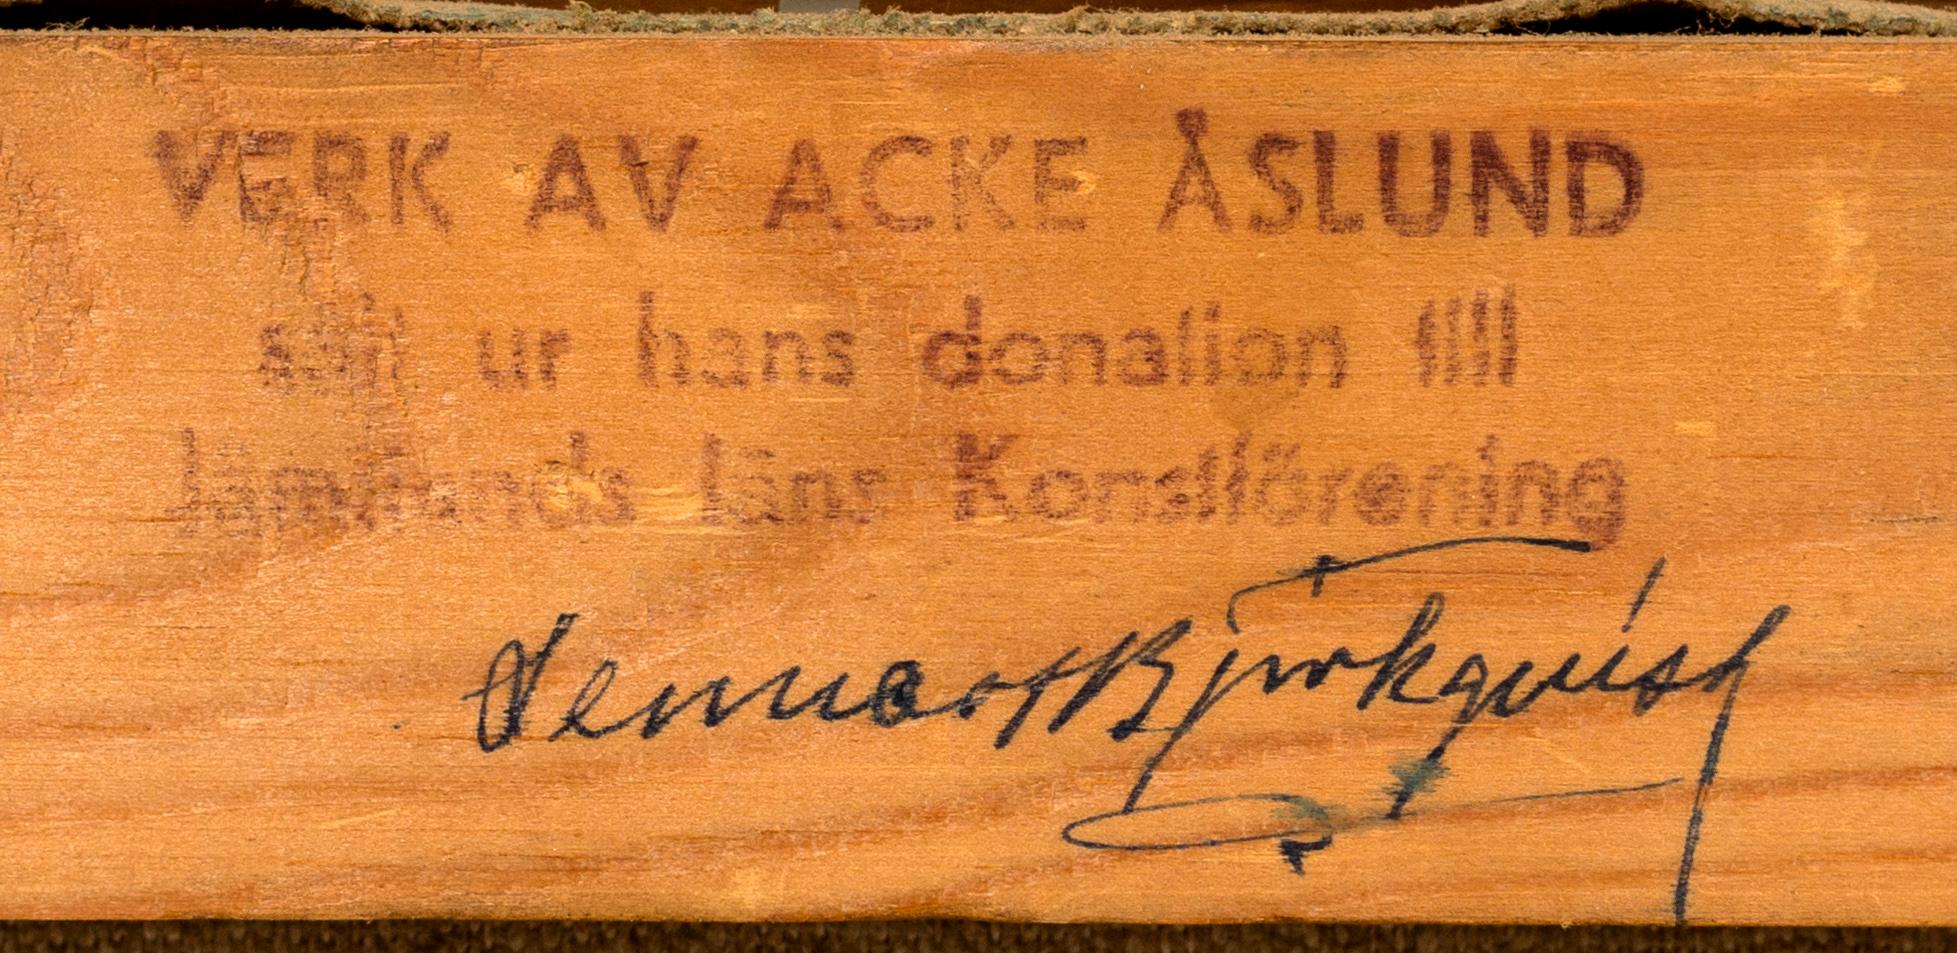 VERK AV ACKE ÅSLUND
sålt ur hans donation till
Jämtlands läns Konstförening
Lennart Björkqvist